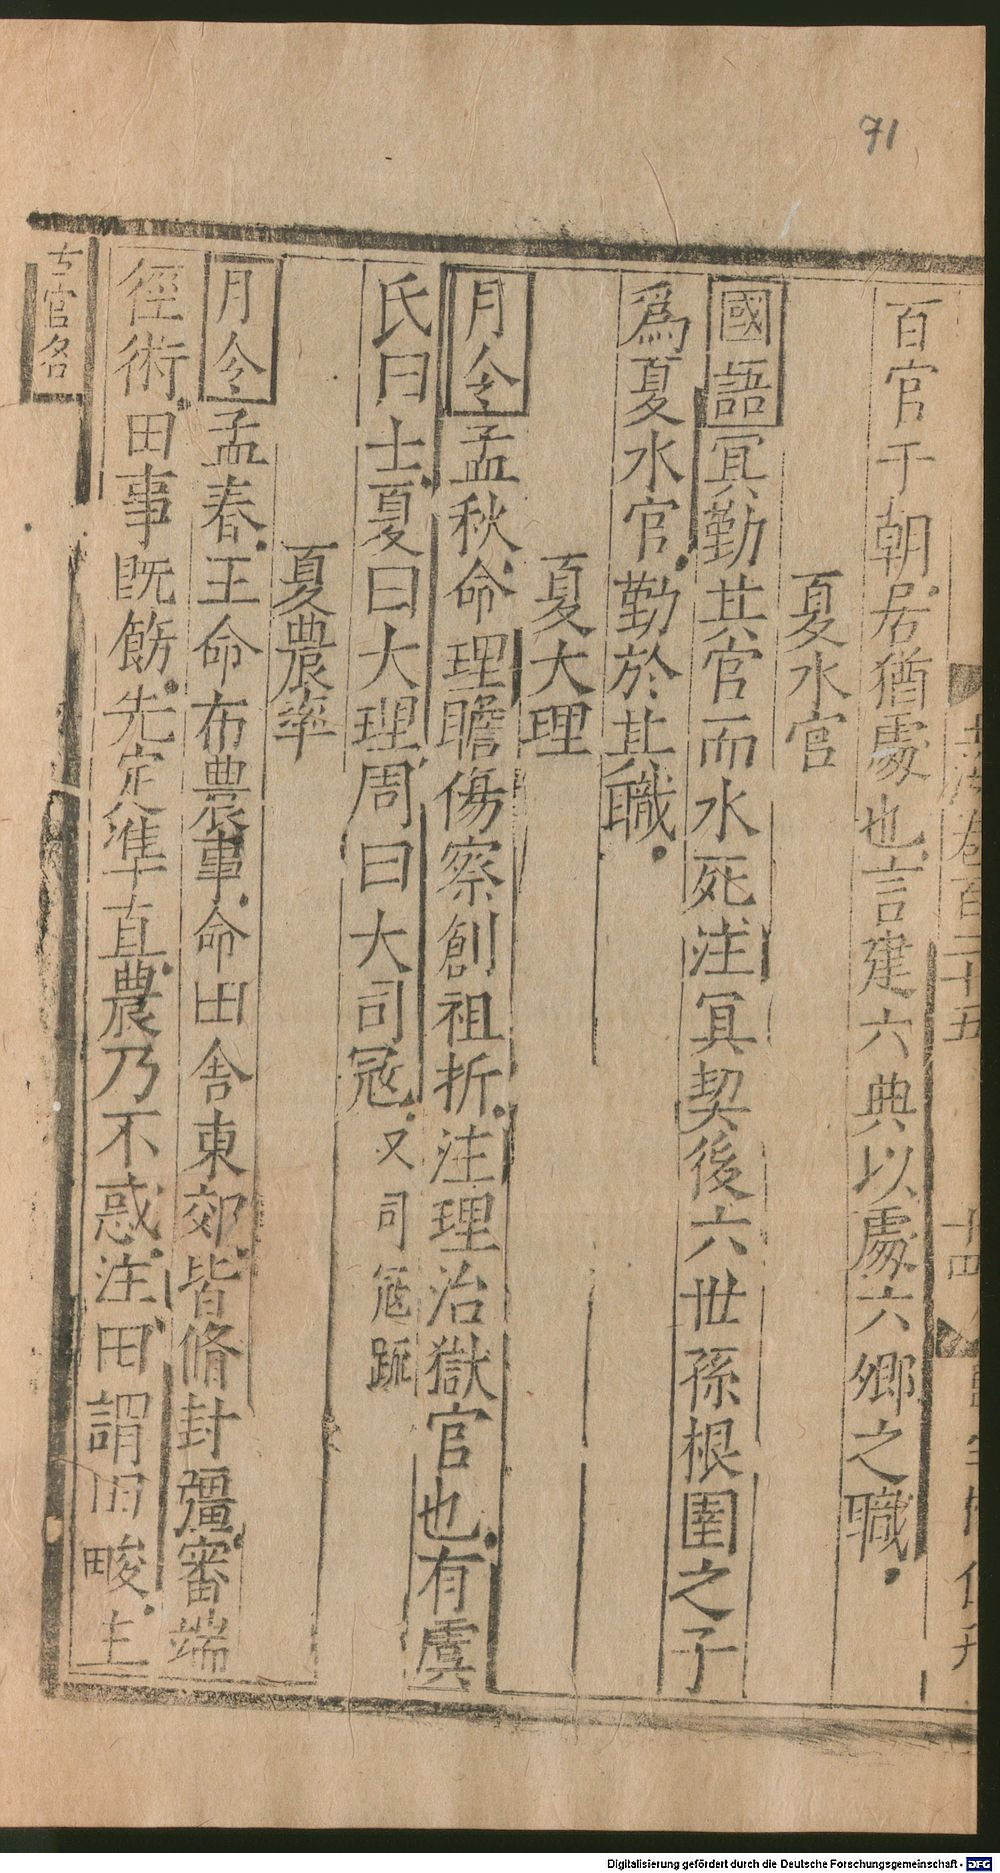 71
玉海卷百二十五
十四
百官于朝居猶處也言建六典以處六卿之職
夏水官
國語冥勤其官而水死注冥契後六世孫根圉之子
爲夏水官勤於其職
夏大理
月令孟秋命理瞻傷察創視折注理治獄官也有虞
氏曰士夏曰大理周曰大司冦又司冦疏
夏農率
月令孟春王命布農事命田舎東郊皆脩封彊審端
徑術田事既飭先定準直農乃不惑注田謂田畯主
古官名
Digitalisierung gefördert durch die Deutsche Forschungsgemeinschaft - DFG